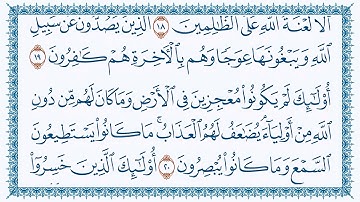 أَلَا لَعْنَةُ ٱللَّهِ عَلَى ٱلظَّٰلِمِينَ ١٨ ٱلَّذِينَ يَصُدُّونَ عَن سَبِيلِ
ٱللَّهِ وَيَبْغُونَهَا عِوَجًا وَهُم بِٱلْأَخِرَةِ هُمْ كَٰفِرُونَ ١٩
أُو۟لَٰٓئِكَ لَمْ يَكُونُوا۟ مُعْجِزِينَ فِى ٱلْأَرْضِ وَمَا كَانَ لَهُم مِّن دُونِ
ٱللَّهِ مِنْ أَوْلِيَآءَ يُضَٰعَفُ لَهُمُ ٱلْعَذَابُ مَا كَانُوا۟ يَسْتَطِيعُونَ
ٱلسَّمْعَ وَمَا كَانُوا۟ يُبْصِرُونَ ٢٠ أُو۟لَٰٓئِكَ ٱلَّذِينَ خَسِرُوٓا۟